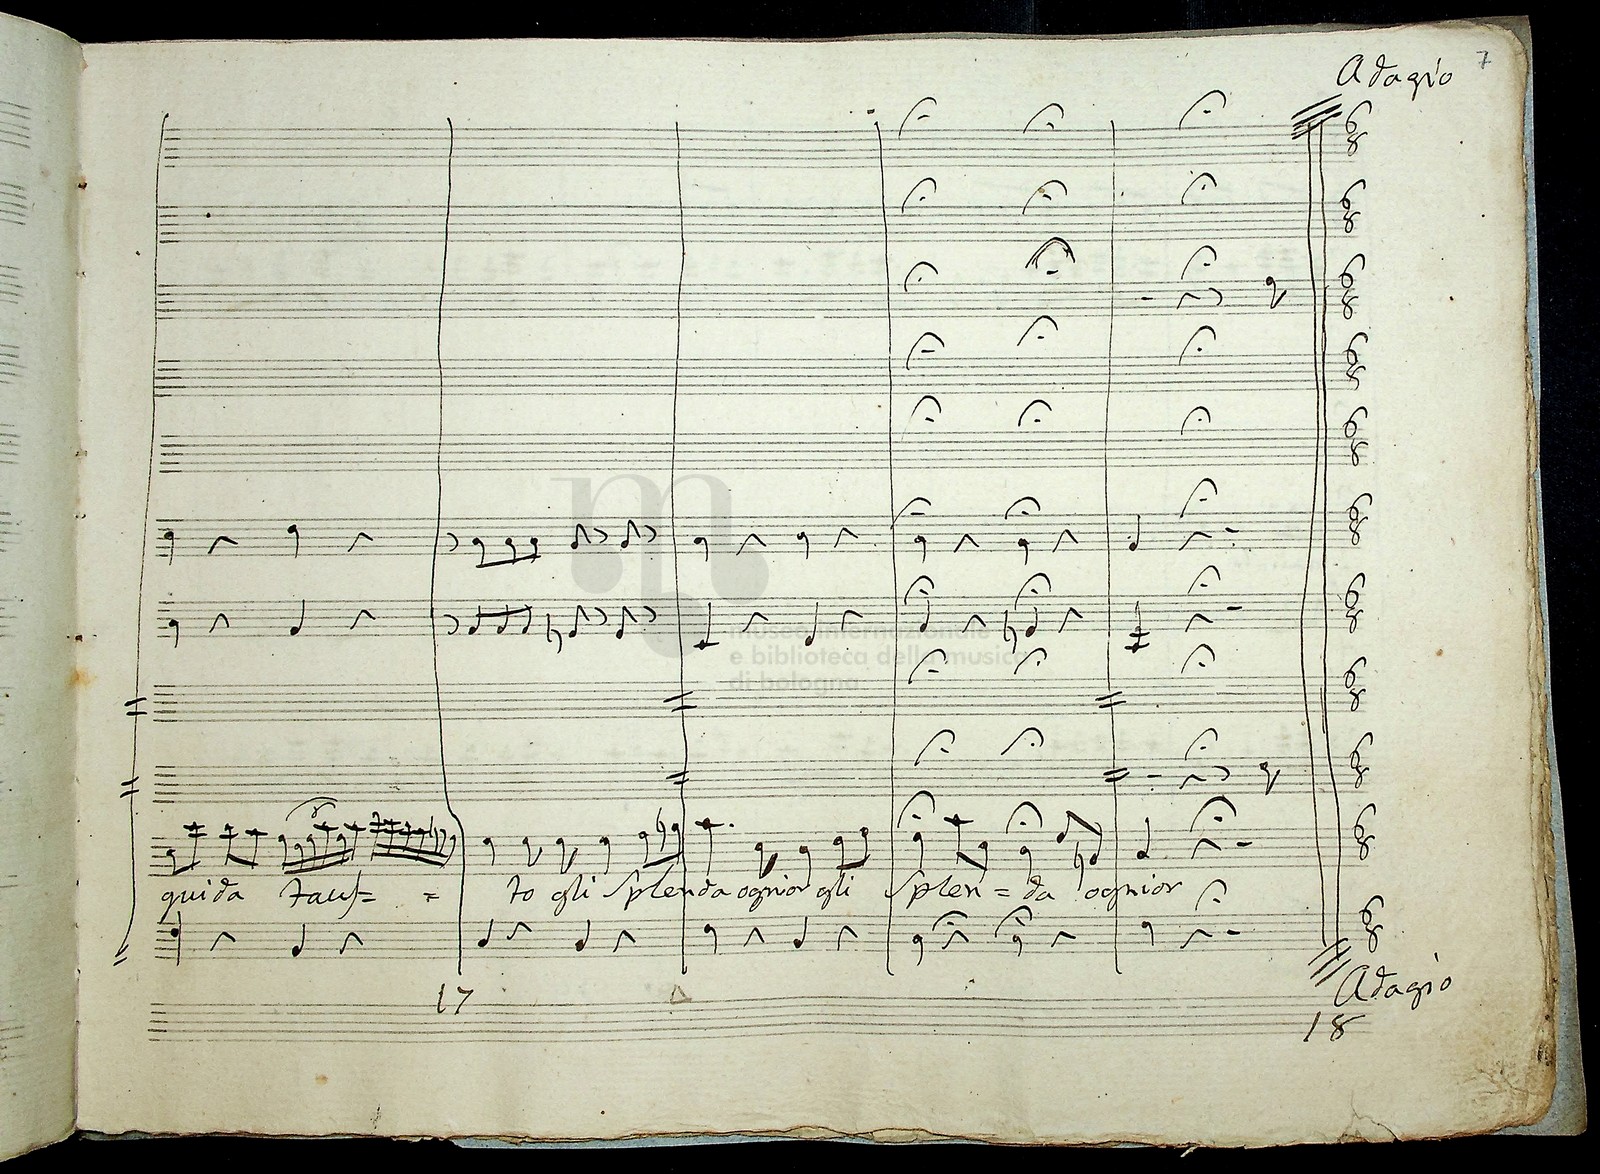 Adagio 7
museo internazionale
e biblioteca della musica
di bologna
guida faus= = to gli splenda ognior gli splen=da ognior
Adagio
17 18